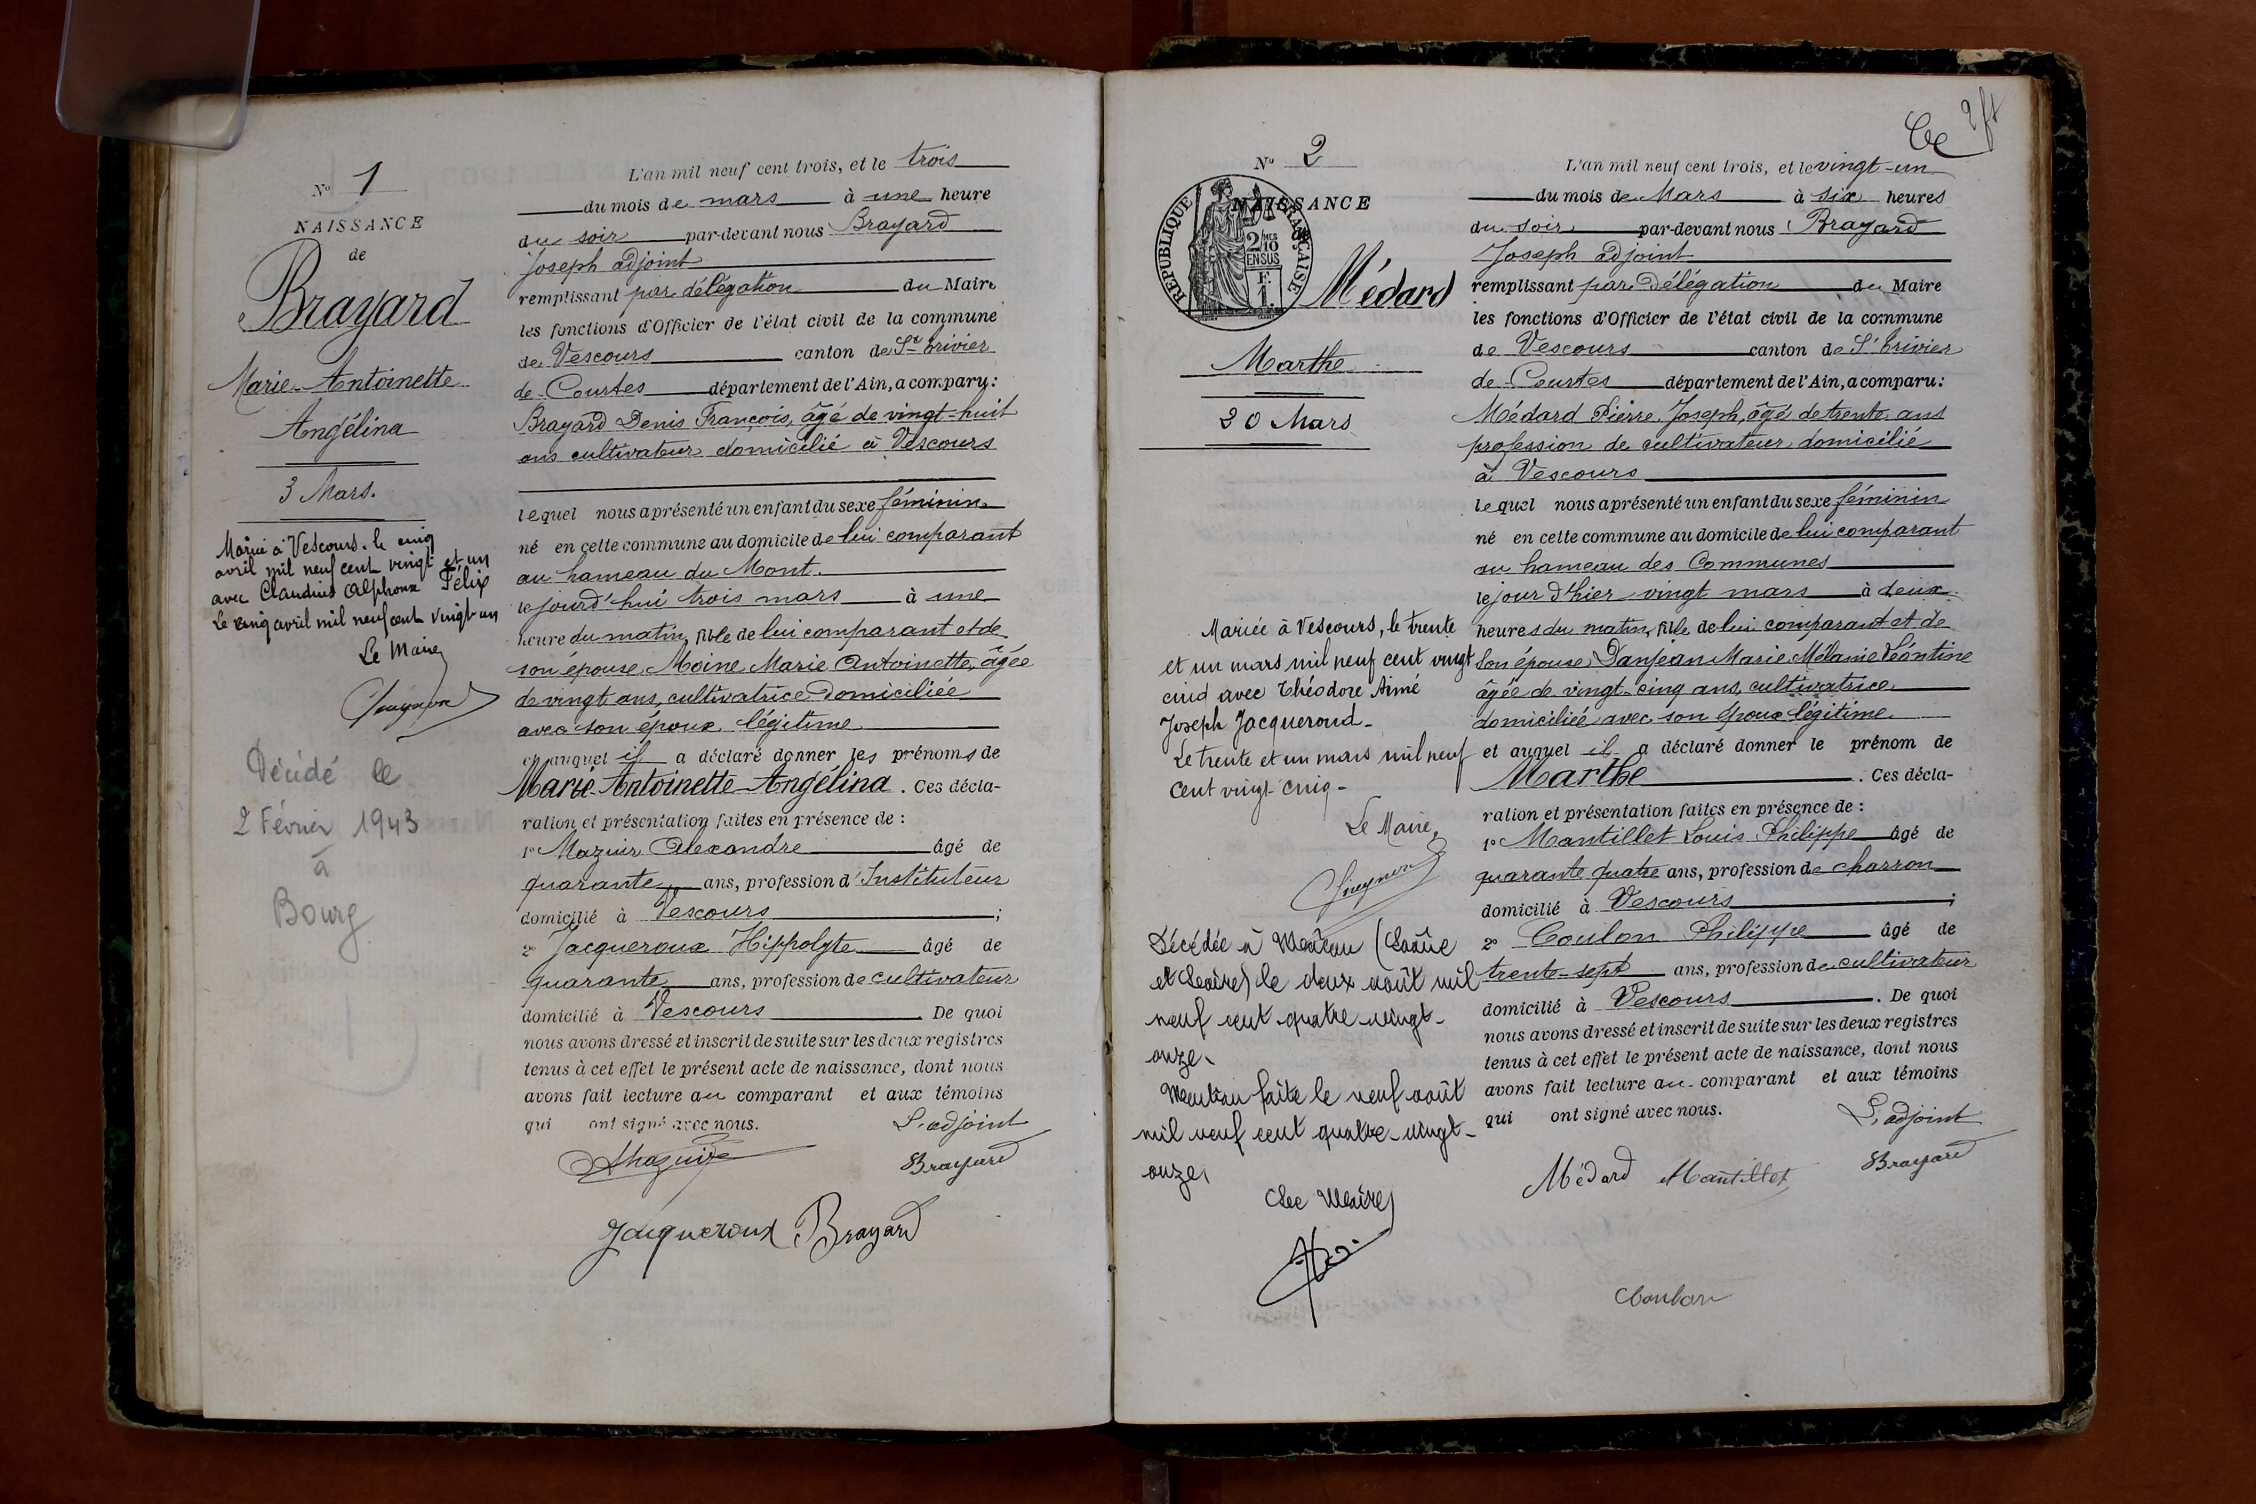 N° 1
NAISSANCE
de
Brayard
Marie-Antoinette
Angélina
3 Mars.
Mariée à Vescours. le cinq
avril mil neuf cent vingt et un
avec Claudius Alphonse Félix
Le cinq avril mil neuf cent vingt-un
Le Maire
Décédé le
2 Février 1943
à
Bourg
L'an mil neuf cent trois, et le trois
du mois de mars à une heure
du soir par-devant nous Brayard
Joseph adjoint
remplissant par délégation du Maire
les fonctions d'Officier de l'état civil de la commune
de Vescours canton de St Trivier
de Courtes département de l'Ain, a comparu:
Brayard Denis François, âgé de vingt-huit
ans cultivateur domicilié à Vescours
lequel nous a présenté un enfant du sexe féminin
né en cette commune au domicile de lui comparant
au hameau du Mont.
lejourd'hui trois mars à une
heure du matin, fille de lui comparant et de
son épouse Moine Marie Antoinette, âgée
de vingt ans, cultivatrice domiciliée
avec son époux légitime
et auquel il a déclaré donner les prénoms de
Marie-Antoinette-Angélina. Ces décla-
ration et présentation faites en présence de :
1° Mazuir Alexandre âgé de
quarante ans, profession d'Instituteur
domicilié à Vescours ;
2° Jacqueroux Hippolyte âgé de
quarante ans, profession de cultivateur
domicilié à Vescours . De quoi
nous avons dressé et inscrit de suite sur les deux registres
tenus à cet effet le présent acte de naissance, dont nous
avons fait lecture au comparant et aux témoins
qui ont signé avec nous.
L'adjoint
AMazuir Brayard
Jacqueroux Brayard
2 ft
N° 2
NAISSANCE
RÉPUBLIQUE FRANÇAISE
2/10
EN SUS
F.
1.
Médard
Marthe
20 Mars
Mariée à Vescours, le trente
et un mars mil neuf cent vingt
cinq avec Théodore Aimé
Joseph Jacqueroud-
Le trente et un mars mil neuf
cent vingt cinq-
Le Maire,
Décédée à Mâcon (Saône
et Loire) le deux août mil
neuf cent quatre-vingt-
onze.
Mention faite le neuf août
mil neuf cent quatre-vingt-
onze,
Le Maire,
L'an mil neuf cent trois, et le vingt-un
du mois de Mars à six heures
du soir par-devant nous Brayard
Joseph adjoint
remplissant par Délégation du Maire
les fonctions d'Officier de l'état civil de la commune
de Vescours canton de St Trivier
de Courtes département de l'Ain, a comparu:
Médard Pierre Joseph, âgé de trente ans
profession de cultivateur domicilié
à Vescours
lequel nous a présenté un enfant du sexe féminin
né en cette commune au domicile de lui comparant
au hameau des Communes
le jour d'hier vingt mars à deux
heures du matin, fille de lui comparant et de
son épouse Danjean Marie Mélanie Léontine
âgée de vingt-cinq ans, cultivatrice
domiciliée avec son époux légitime.
et auquel il a déclaré donner le prénom de
Marthe . Ces décla-
ration et présentation faites en présence de :
1° Mantillet Louis Philippe âgé de
quarante quatre ans, profession de charron
domicilié à Vescours ;
2° Coulon Philippe âgé de
trente-sept ans, profession de cultivateur
domicilié à Vescours . De quoi
nous avons dressé et inscrit de suite sur les deux registres
tenus à cet effet le présent acte de naissance, dont nous
avons fait lecture au comparant et aux témoins
qui ont signé avec nous.
L'adjoint
Médard Mantillet Brayard
Coulon